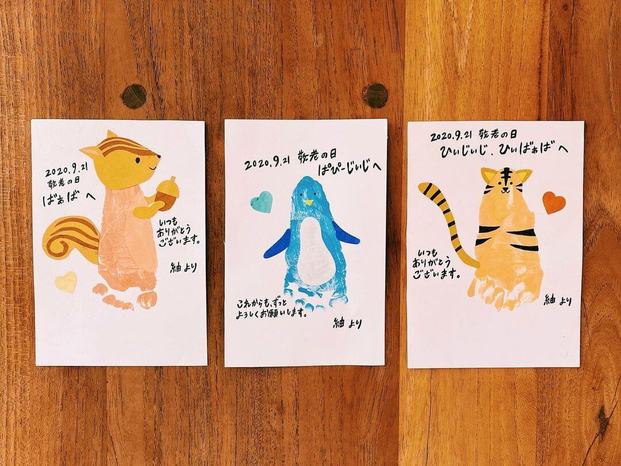 2020.9.21
敬老の日
ばぁばへ
いつも
ありがとう
ございます。
紬より
2020.9.21 敬老の日
ぱぴーじぃじへ
これからも、ずっと
よろしくお願いします。
紬より
2020.9.21 敬老の日
ひぃじぃじ、ひぃばぁばへ
いつも
ありがとう
ございます。
紬より